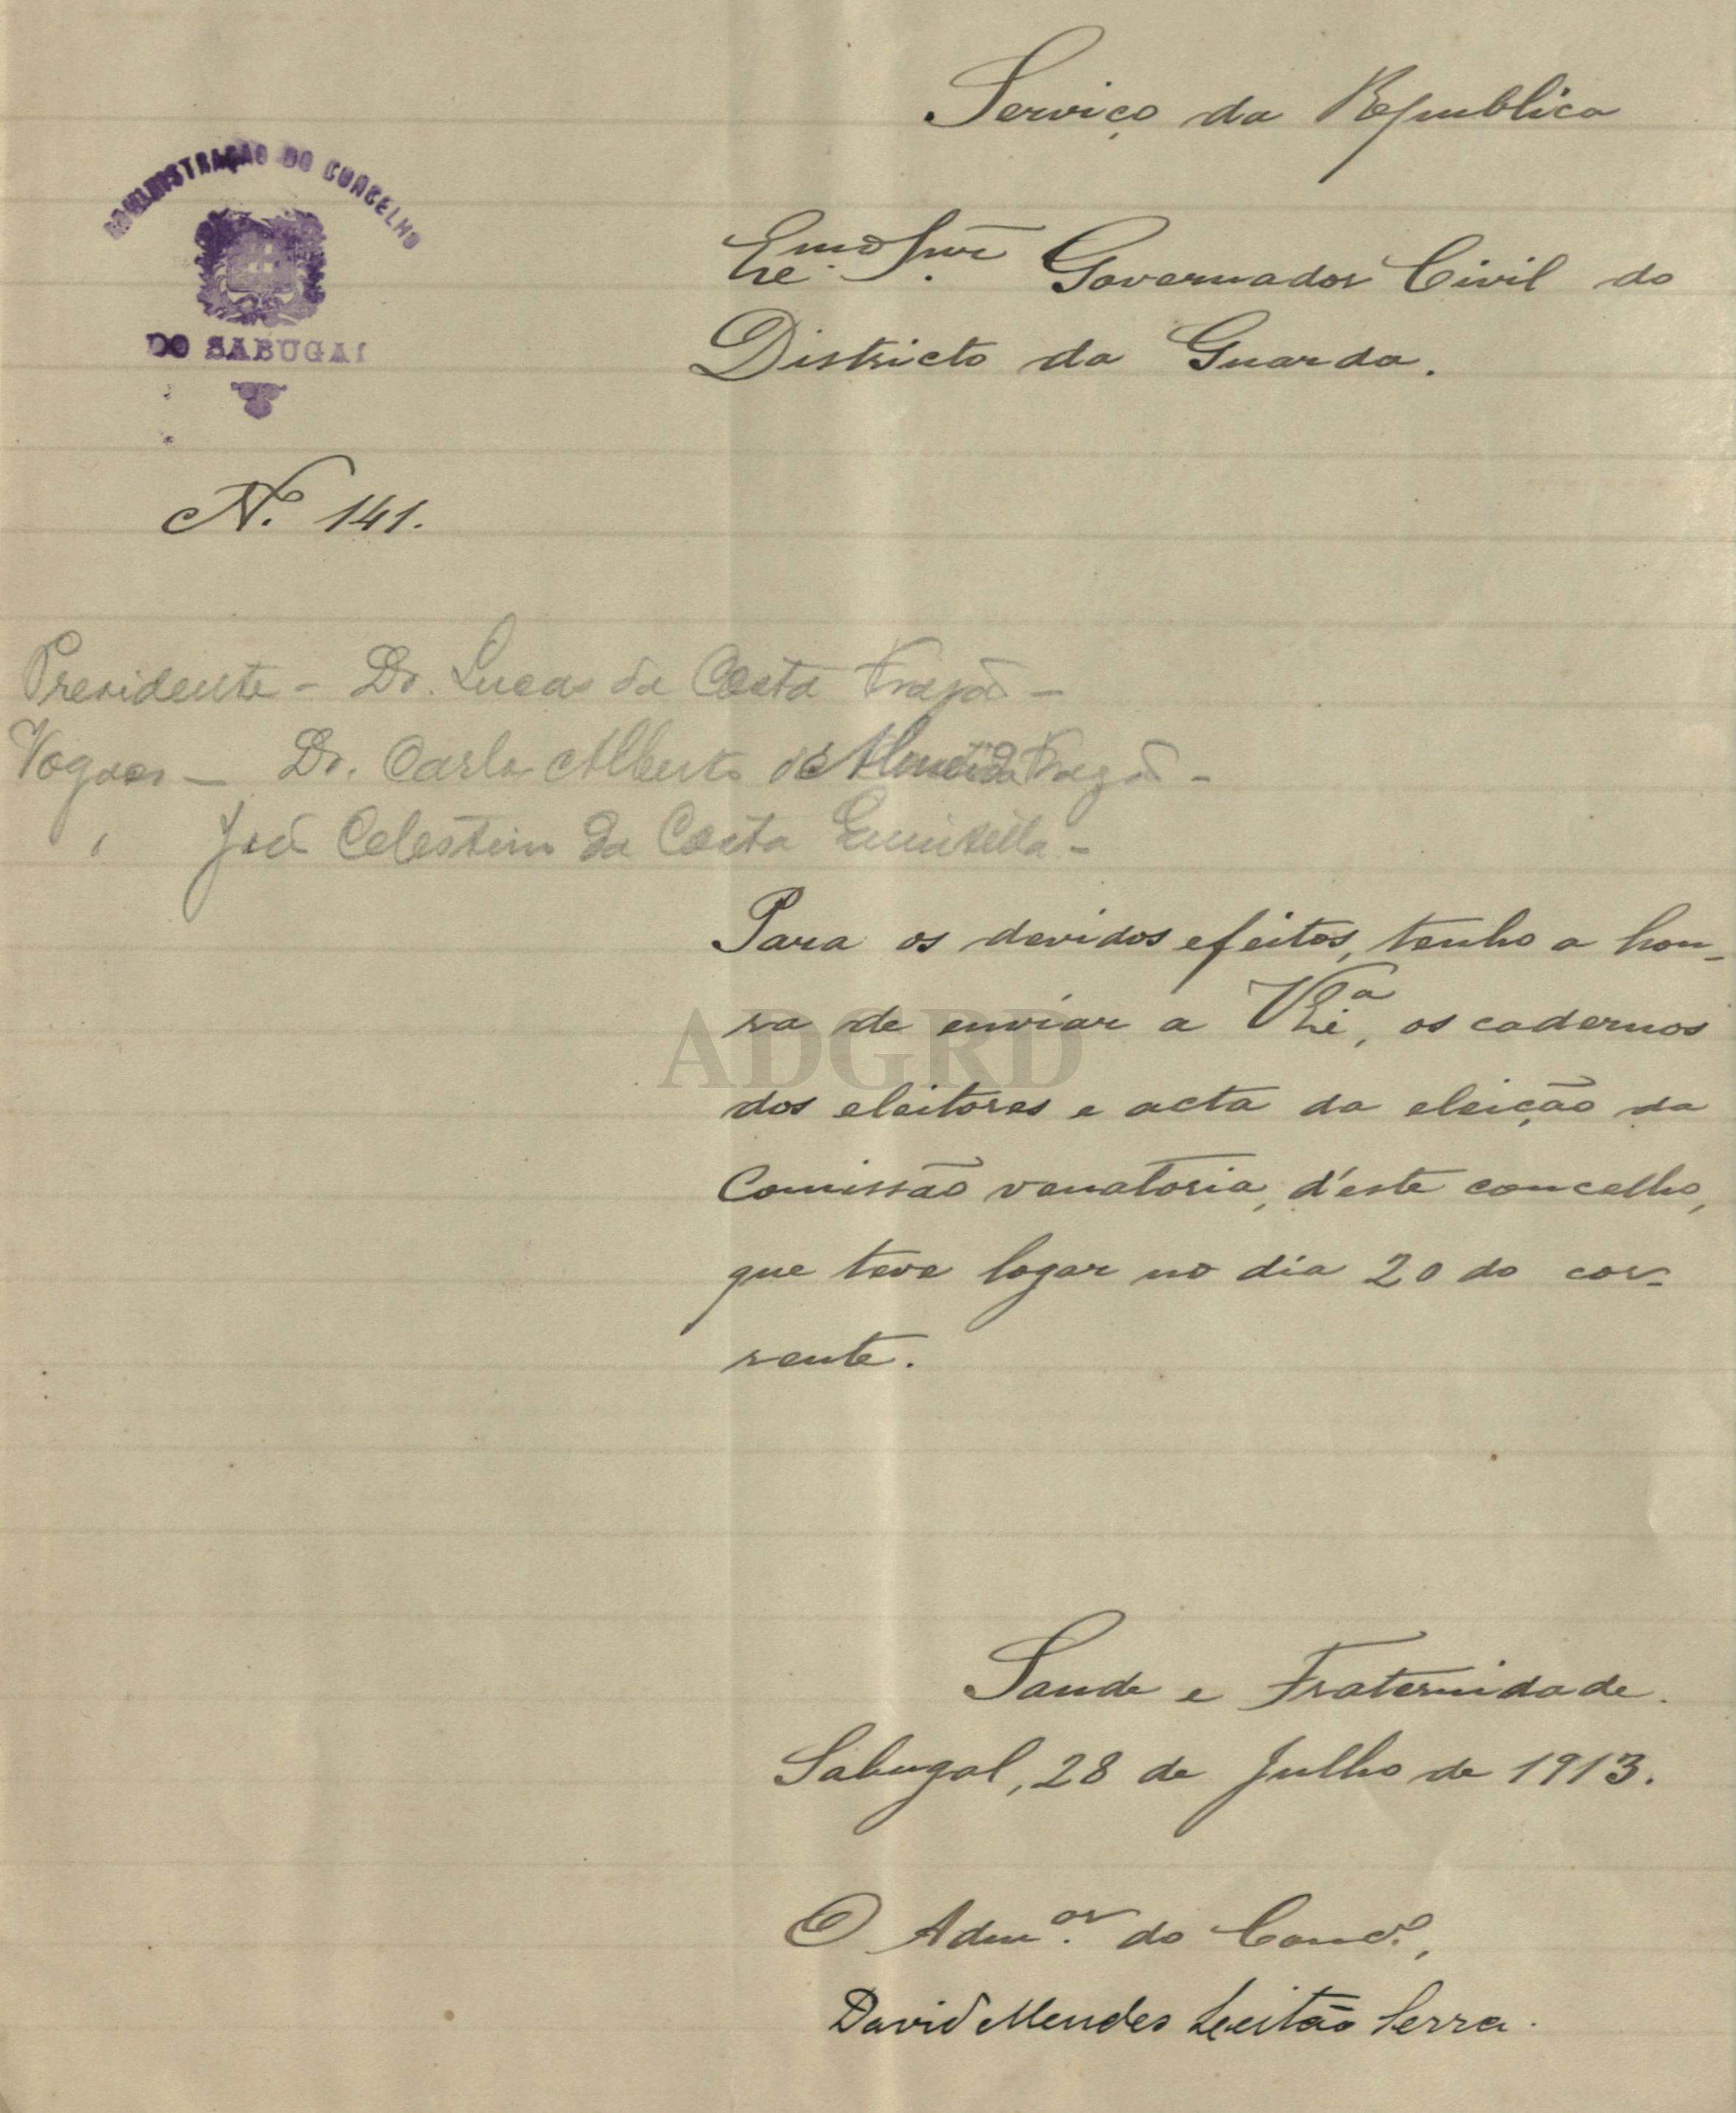 Serviço da Republica
ADMINISTRAÇÃO DO CONCELHO
DO SABUGAL
Exmo Snr. Governador Civil do
Districto da Guarda.
N.º 141.
Presidente - Dr. Lucas da Costa Fragão -
Vogaes - Dr. Carlos Alberto de Almeida Fragão -
" José Celestino da Costa -
Para os devidos efeitos, tenho a hon-
ra de enviar a V. Exª, os cadernos
dos eleitores e acta da eleição da
Comissão venatoria, d'este concelho,
que teve logar no dia 20 do cor-
rente.
ADGRD
Saude e Fraternidade.
Sabugal, 28 de Julho de 1913.
O Adm.or do Conc.º,
David Mendes Leitão Serra.